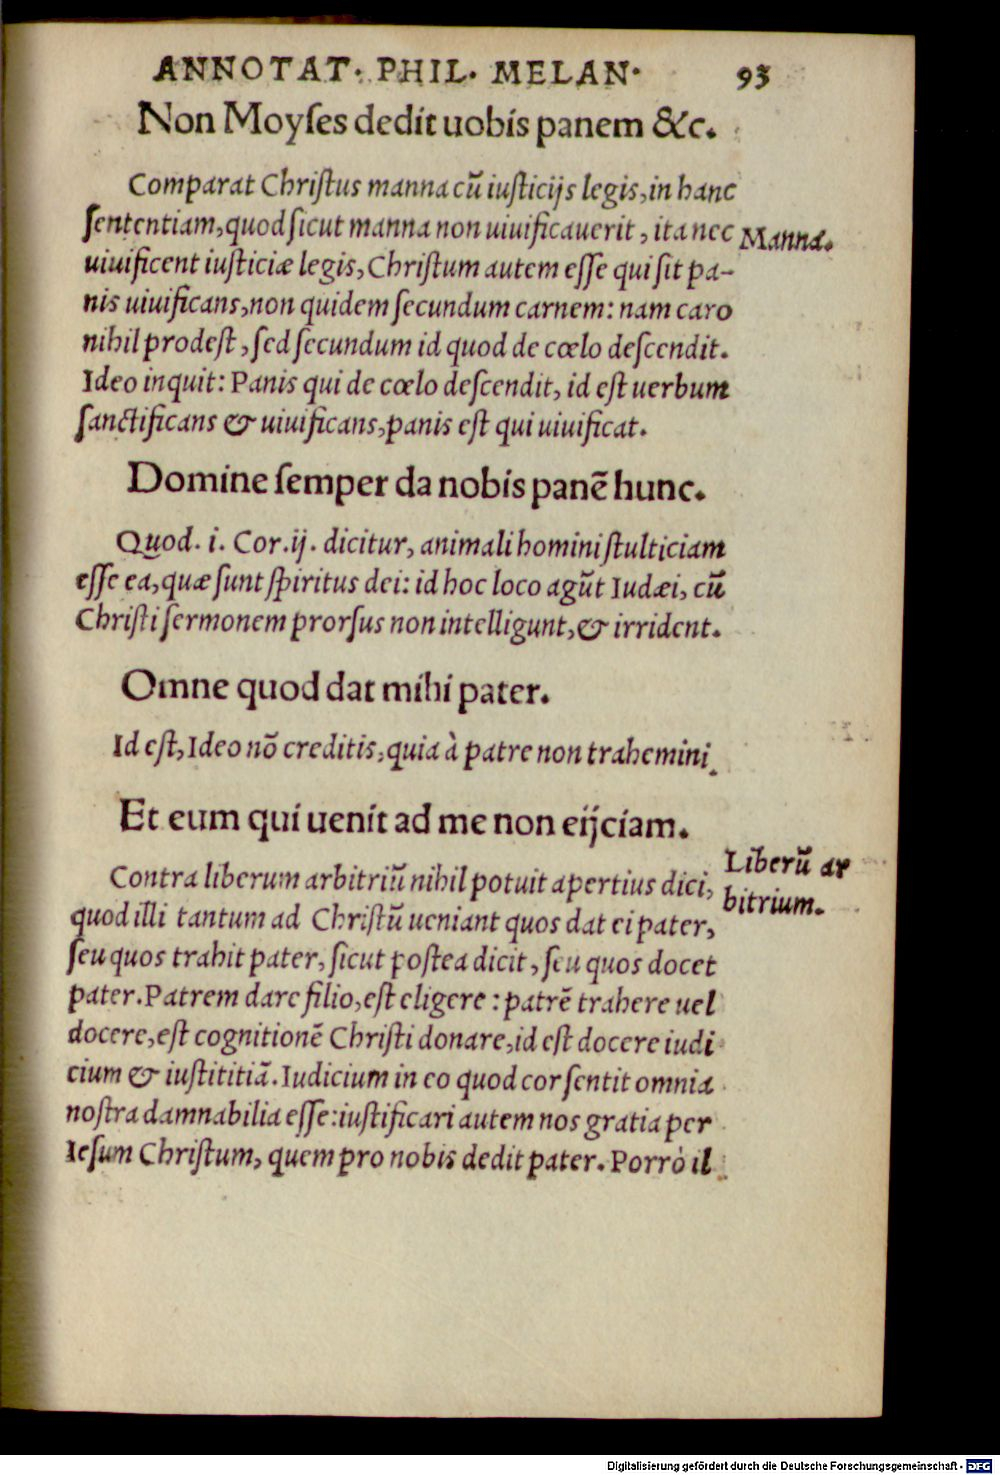 ANNOTAT. PHIL. MELAN. 93
Non Moyſes dedit uobis panem &c.
Comparat Chriſtus manna cũ iuſticijs legis, in hanc
ſententiam, quod ſicut manna non uiuificauerit, ita nec
Manna.
uiuificent iuſticiæ legis, Chriſtum autem eſſe qui ſit pa-
nis uiuificans, non quidem ſecundum carnem: nam caro
nihil prodeſt, ſed ſecundum id quod de cœlo deſcendit.
Ideo inquit: Panis qui de cœlo deſcendit, id eſt uerbum
ſanctificans & uiuificans, panis eſt qui uiuificat.
Domine ſemper da nobis panẽ hunc.
Quod. i. Cor. ij. dicitur, animali homini ſtulticiam
eſſe ea, quæ ſunt ſpiritus dei: id hoc loco agũt Iudæi, cũ
Chriſti ſermonem prorſus non intelligunt, & irrident.
Omne quod dat mihi pater.
Id eſt, Ideo nõ creditis, quia à patre non trahemini.
Et eum qui uenit ad me non eijciam.
Contra liberum arbitriũ nihil potuit apertius dici,
Liberũ ar
bitrium.
quod illi tantum ad Chriſtũ ueniant quos dat ei pater,
ſeu quos trahit pater, ſicut poſtea dicit, ſeu quos docet
pater. Patrem dare filio, eſt eligere: patrẽ trahere uel
docere, eſt cognitionẽ Chriſti donare, id eſt docere iudi
cium & iuſtititiã. Iudicium in eo quod cor ſentit omnia
noſtra damnabilia eſſe: iuſtificari autem nos gratia per
Ieſum Chriſtum, quem pro nobis dedit pater. Porrò il
Digitalisierung gefördert durch die Deutsche Forschungsgemeinschaft - DFG